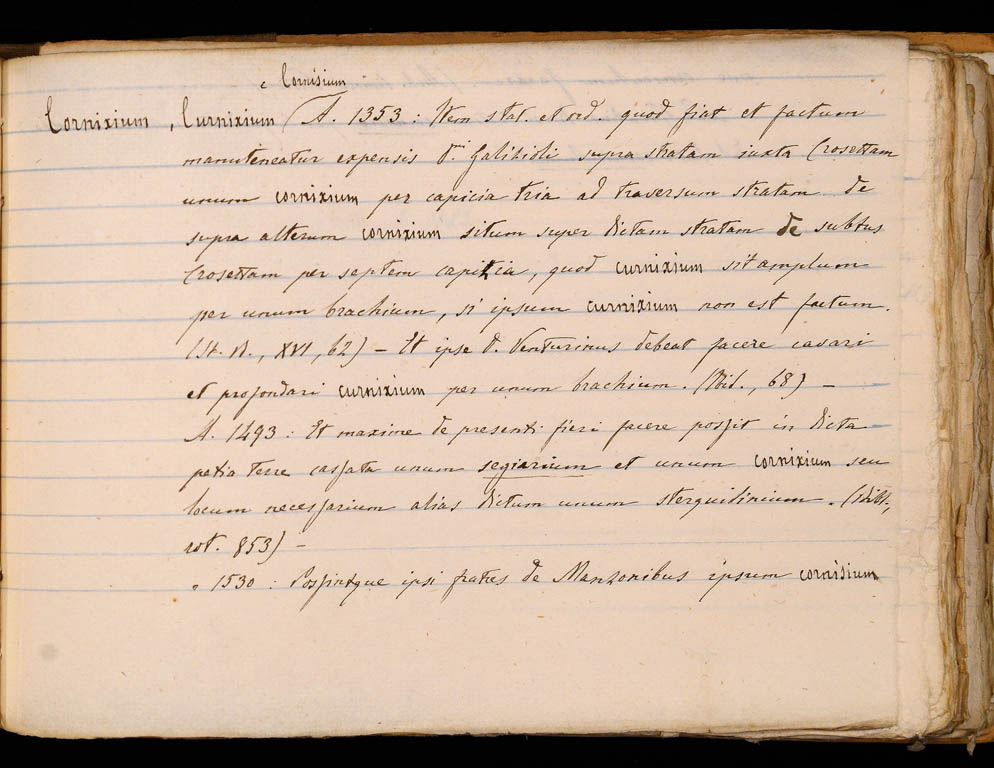 e Cornisium
Cornixium, Curnixium (A. 1353: Item stat. et ord. quod fiat et factum
manuteneatur expensis d.ni Galitioli supra stratam iuxta Crosettam
unum cornixium per capicia tria ad traversum stratam de
supra alterum cornixium situm super dictam stratam de subtus
Crosettam per septem capitia, quod curnixium sit amplum
per unum brachium, si ipsum curnixium non est factum.
(St. B., XVI, 62) – Et ipse d. Venturinus debeat facere cavari
et profondari curnixium per unum brachium. (Ibid., 68) –
A. 1493: Et maxime de presenti fieri facere possit in dicta
petia terre cassata unum segiarium et unum cornixium seu
locum necessarium alias dictum unum sterquilinium. (
rot. 853) –
" 1530: Possintque ipsi fratres de Manzonibus ipsum cornisium